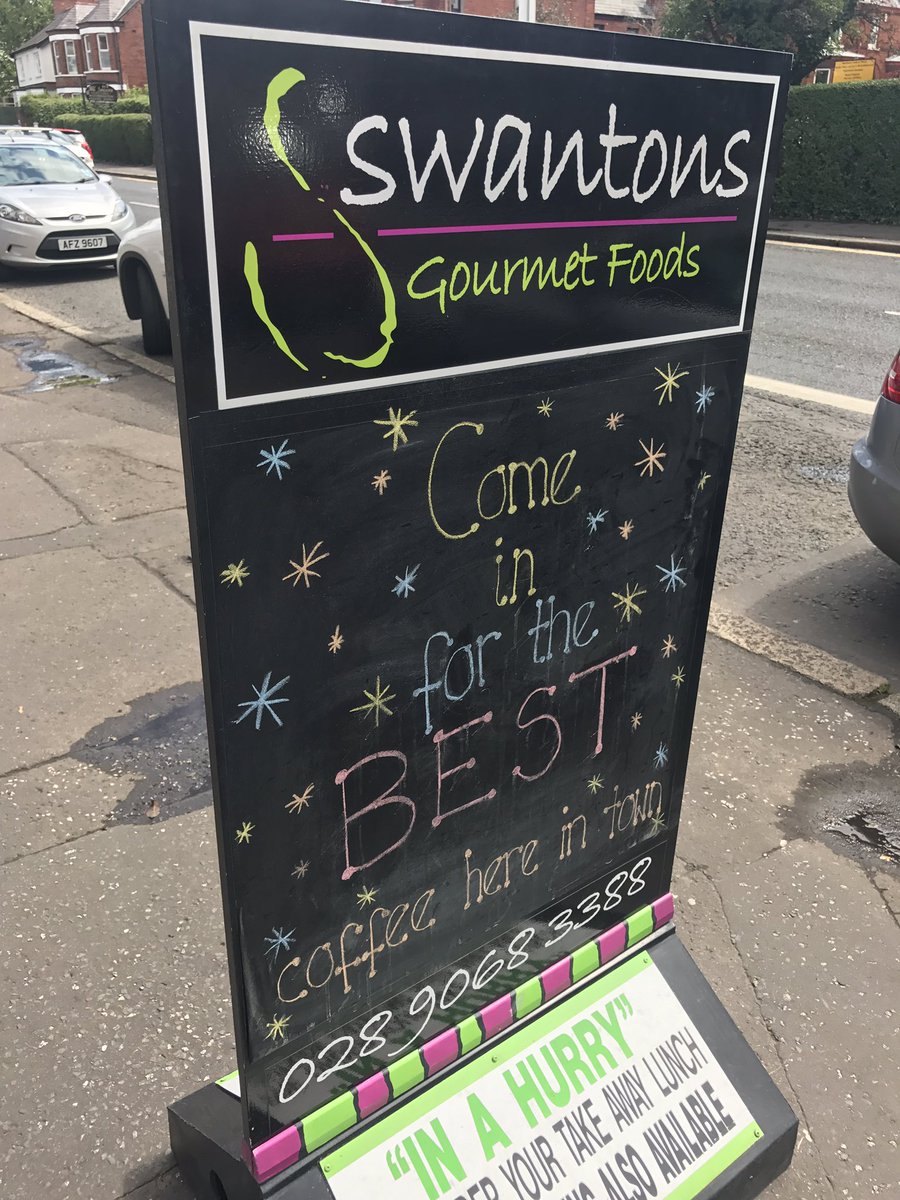 Swantons
Gourmet Foods
Come
in
for the
BEST
coffee here in town
028 9068 3388
"IN A HURRY"
YOUR TAKE AWAY LUNCH
ALSO AVAILABLE
AFZ 9607